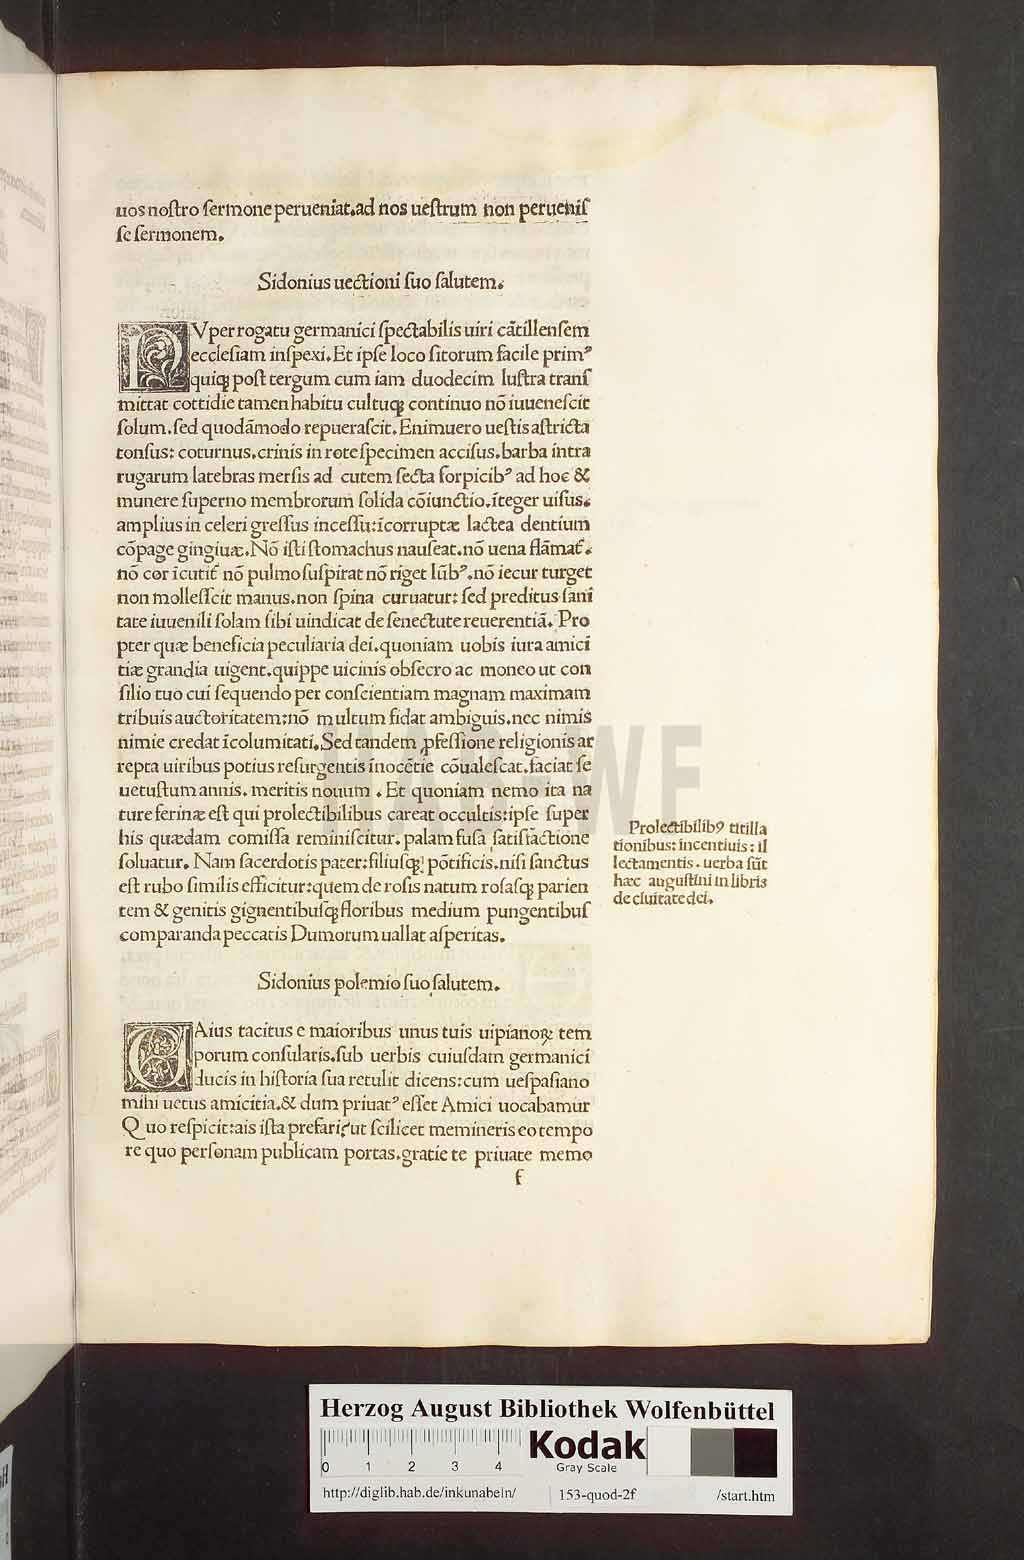 uos nostro sermone perueniat.ad nos uestrum non peruenis
se sermonem.
Sidonius uectioni suo salutem.
NVper rogatu germanici spectabilis uiri cātillensem
ecclesiam inspexi.Et ipse loco sitorum facile primꝰ
quiqꝫ post tergum cum iam duodecim lustra trans
mittat cottidie tamen habitu cultuqꝫ continuo nō iuuenescit
solum.sed quodāmodo repuerascit.Enimuero uestis astricta
tonsus: coturnus.crinis in rote specimen accisus.barba intra
rugarum latebras mersis ad cutem secta forpicibꝰ ad hoc &
munere superno membrorum solida cōiunctio.īteger uisus.
amplius in celeri gressus incessu:īcorruptæ lactea dentium
cōpage gingiuæ.Nō isti stomachus nauseat.nō uena flāmat̄.
nō cor īcutit̄ nō pulmo suspirat nō riget lūbꝰ.nō iecur turget
non mollesscit manus.non spina curuatur: sed preditus sani
tate iuuenili solam sibi uindicat de senectute reuerentiā. Pro
pter quæ beneficia peculiaria dei.quoniam uobis iura amici
tiæ grandia uigent.quippe uicinis obsecro ac moneo ut con
silio tuo cui sequendo per conscientiam magnam maximam
tribuis auctoritatem:nō multum fidat ambiguis.nec nimis
nimie credat īcolumitati.Sed tandem ꝓfessione religionis ar
repta uiribus potius resurgentis īnocētie cōualescat.faciat se
uetustum annis. meritis nouum . Et quoniam nemo ita na
ture ferinæ est qui prolectibilibus careat occultis:ipse super
his quædam comissa reminiscitur. palam fusa satisfactione
soluatur. Nam sacerdotis pater:filiusqꝫ pōtificis.nisi sanctus
est rubo similis efficitur:quem de rosis natum rosasqꝫ parien
tem & genitis gignentibusqꝫ floribus medium pungentibus
comparanda peccatis Dumorum uallat asperitas.
Prolectibilibꝰ titilla
tionibus: incentiuis: il
lectamentis. uerba sūt
hæc augustini in libris
de ciuitate dei.
Sidonius polemio suo salutem.
CAius tacitus e maioribus unus tuis uipianoꝝ tem
porum consularis.sub uerbis cuiusdam germanici
ducis in historia sua retulit dicens:cum uespasiano
mihi uetus amicitia.& dum priuatꝰ esset Amici uocabamur
Quo respicit:ais ista prefari?ut scilicet memineris eo tempo
re quo personam publicam portas.gratie te priuate memo
f
HAB-WF
Herzog August Bibliothek Wolfenbüttel
0 1 2 3 4
Kodak
Gray Scale
http://diglib.hab.de/inkunabeln/ 153-quod-2f /start.htm